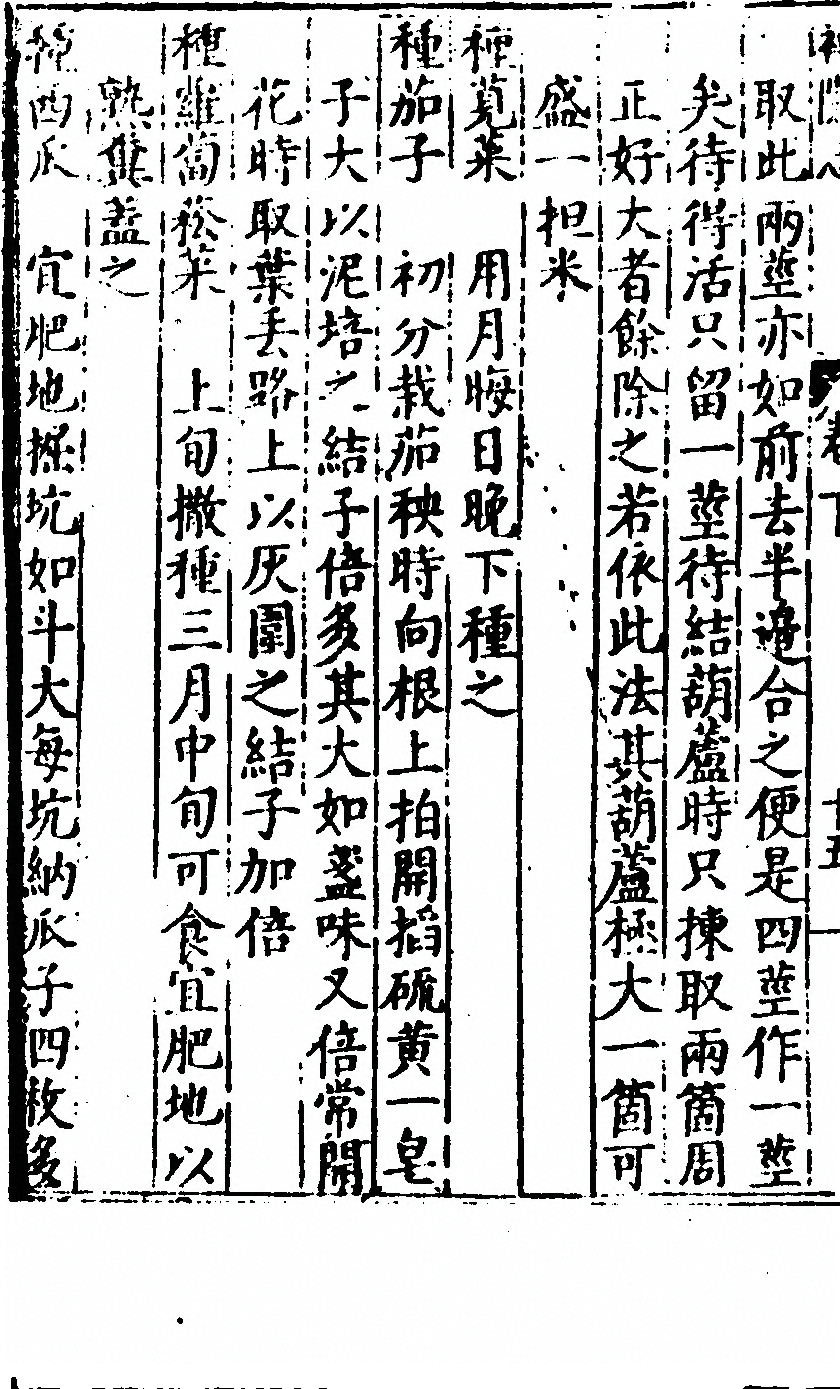 卷下 十五
取此兩莖亦如前去半邉合之便是四莖作一莖
矣待得活只留一莖待結葫蘆時只揀取兩箇周
正好大者餘除之若依此法其葫蘆極大一箇可
盛一担米
種莧菜 用月晦日晚下種之
種茄子 初分栽茄秧時向根上拍開搯硫黄一皂
子大以泥培之結子倍多其大如盞味又倍常開
花時取葉丢路上以灰圍之結子加倍
種蘿蔔菘菜 上旬撒種三月中旬可食宜肥地以
熟糞盖之
種西瓜 宜肥地掘坑如斗大每坑納瓜子四枚多